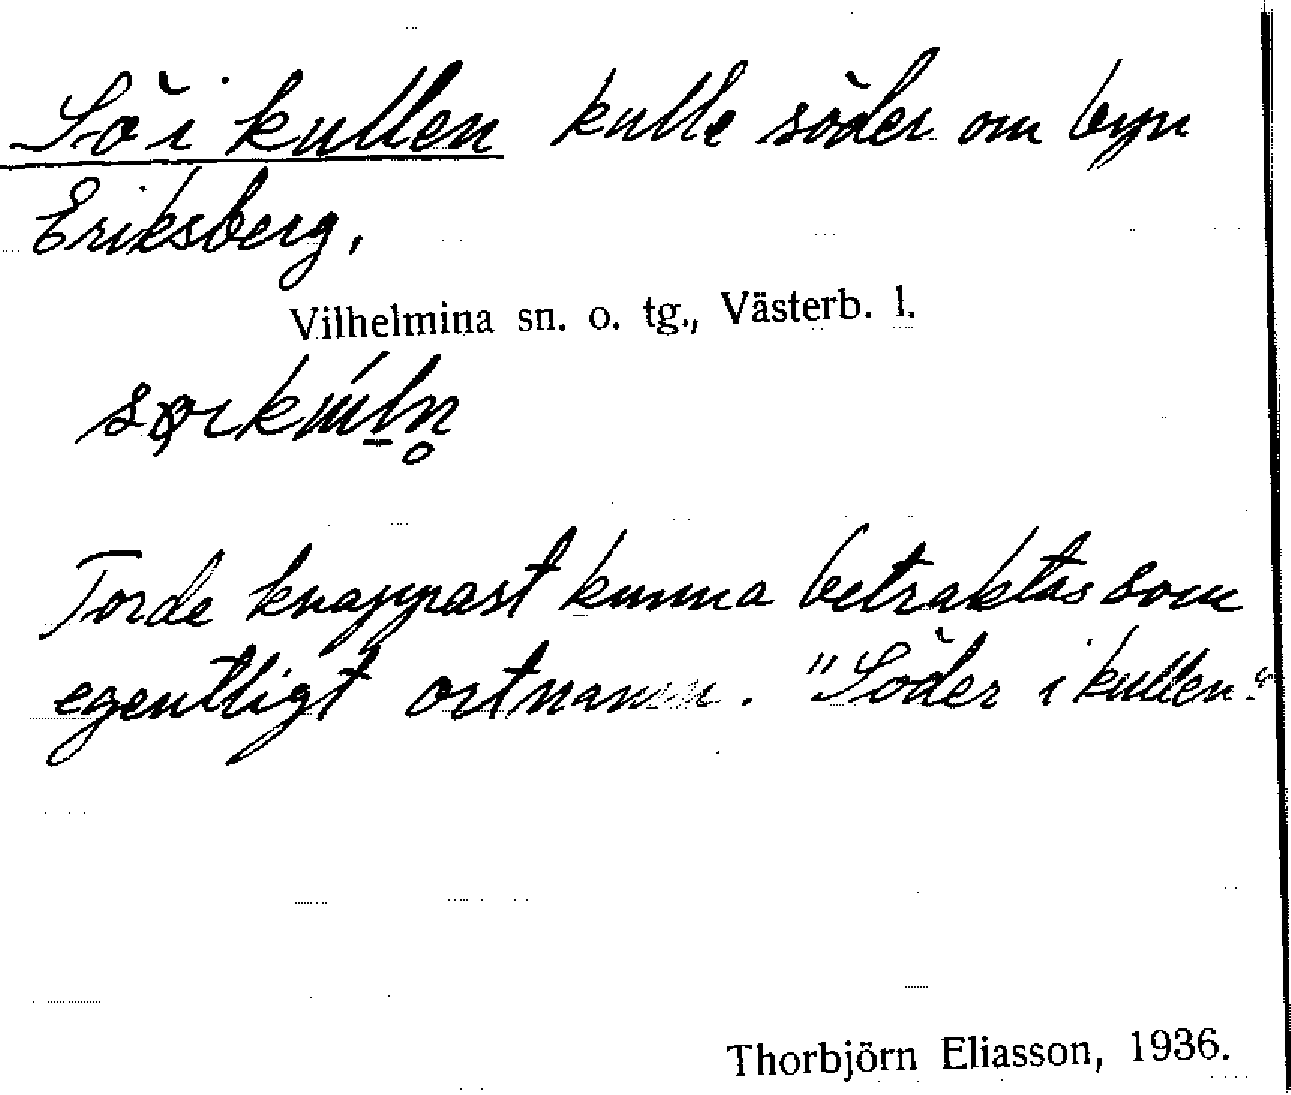 Sö i kullen kulle söder om byn
Eriksberg.
Vilhelmina sn. o. tg., Västerb. l.
Torde knappast kunna betraktas som
egentligt ortnamn. "Söder i kullen."
Thorbjörn Eliasson, 1936.